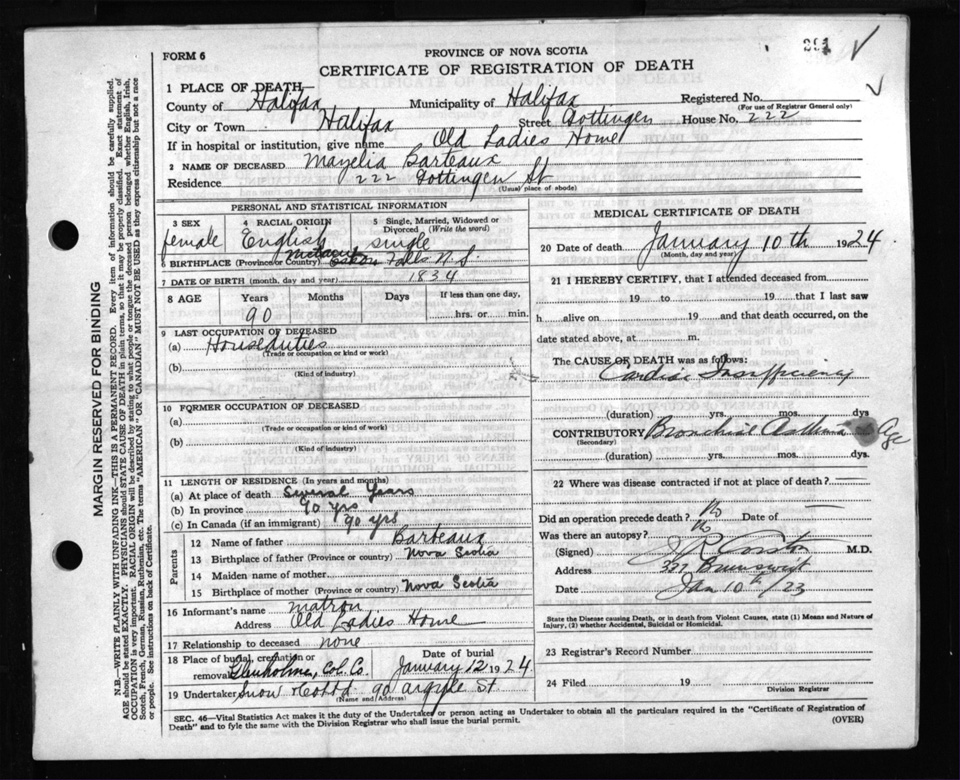 FORM 6
PROVINCE OF NOVA SCOTIA
CERTIFICATE OF REGISTRATION OF DEATH
1 PLACE OF DEATH—
County of Halifax Municipality of Halifax Registered No.
(For use of Registrar General only)
City or Town Halifax Street Gottingen House No. 222
If in hospital or institution, give name Old Ladies Home
2 NAME OF DECEASED Mayelia Barteaux
Residence 222 Gottingen St
(Usual place of abode)
PERSONAL AND STATISTICAL INFORMATION
3 SEX
female
4 RACIAL ORIGIN
English
5 Single, Married, Widowed or Divorced (Write the word)
single
6 BIRTHPLACE (Province or Country) Falls N.S.
7 DATE OF BIRTH (month, day and year) 1834
8 AGE Years Months Days If less than one day,
90 hrs. or min.
9 LAST OCCUPATION OF DECEASED
(a) Houseduties
(Trade or occupation or kind or work)
(b)
(Kind of industry)
10 FORMER OCCUPATION OF DECEASED
(a)
(Trade or occupation or kind of work)
(b)
(Kind of industry)
11 LENGTH OF RESIDENCE (In years and months)
(a) At place of death Several Years
(b) In province 90 yrs
(c) In Canada (if an immigrant) 90 yrs
Parents
12 Name of father Barteaux
13 Birthplace of father (Province or country) Nova Scotia
14 Maiden name of mother
15 Birthplace of mother (Province or country) Nova Scotia
16 Informant's name matron
Address Old Ladies Home
17 Relationship to deceased none
18 Place of burial, cremation or removal Glenholme, Col. Co. Date of burial January 12 1924
19 Undertaker Snow & Co Ltd 90 Argyle St
(Name and Address)
MEDICAL CERTIFICATE OF DEATH
20 Date of death January 10th 1924.
(Month, day and year)
21 I HEREBY CERTIFY, that I attended deceased from
19 to 19 that I last saw
h alive on 19 and that death occurred, on the
date stated above, at m.
The CAUSE OF DEATH was as follows:
Cardiac Insufficiency
(duration) yrs. mos. dys
CONTRIBUTORY Bronchial Asthma Age
(Secondary)
(duration) yrs. mos. dys.
22 Where was disease contracted if not at place of death?
Did an operation precede death? No Date of
Was there an autopsy? No
(Signed) M.D.
Address Brunswick
Date Jan 10th/23
State the Disease causing Death, or in death from Violent Causes, state (1) Means and Nature of Injury, (2) whether Accidental, Suicidal or Homicidal.
23 Registrar's Record Number
24 Filed 19
Division Registrar
SEC. 46—Vital Statistics Act makes it the duty of the Undertaker or person acting as Undertaker to obtain all the particulars required in the "Certificate of Registration of
Death" and to fyle the same with the Division Registrar who shall issue the burial permit.
(OVER)
MARGIN RESERVED FOR BINDING
N.B.—WRITE PLAINLY WITH UNFADING INK—THIS IS A PERMANENT RECORD. Every item of information should be carefully supplied.
AGE should be stated EXACTLY. PHYSICIANS should STATE CAUSE OF DEATH in plain terms, so that it may be properly classified. Exact statement of
OCCUPATION is very important. RACIAL ORIGIN will be described by stating to what people or tongue the deceased person belonged whether English, Irish,
Scotch, French, German, Russian, Ruthenian, etc. The terms "AMERICAN" OR "CANADIAN" MUST NOT BE USED as they express citizenship but not a race
or people. See instructions on back of Certificate.